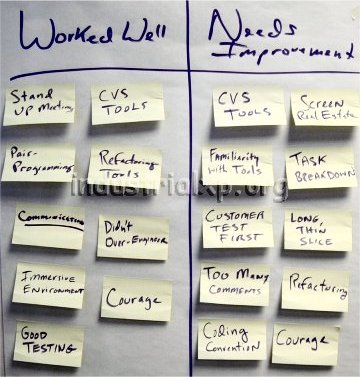 Worked Well
Needs
Improvement
Stand
up Meeting
CVS
TOOLS
CVS
TOOLS
Screen
Real Estate
Pair-
Programming
Refactoring
Tools
Familiarity
with Tools
TASK
BREAKDOWN
industrialxp.org
Communication
Didn't
Over-Engineer
CUSTOMER
TEST
FIRST
LONG,
THIN
SLICE
Immersive
ENVIRONMENT
Courage
Too Many
COMMENTS
Refactoring
GOOD
TESTING
Coding
Convention
Courage